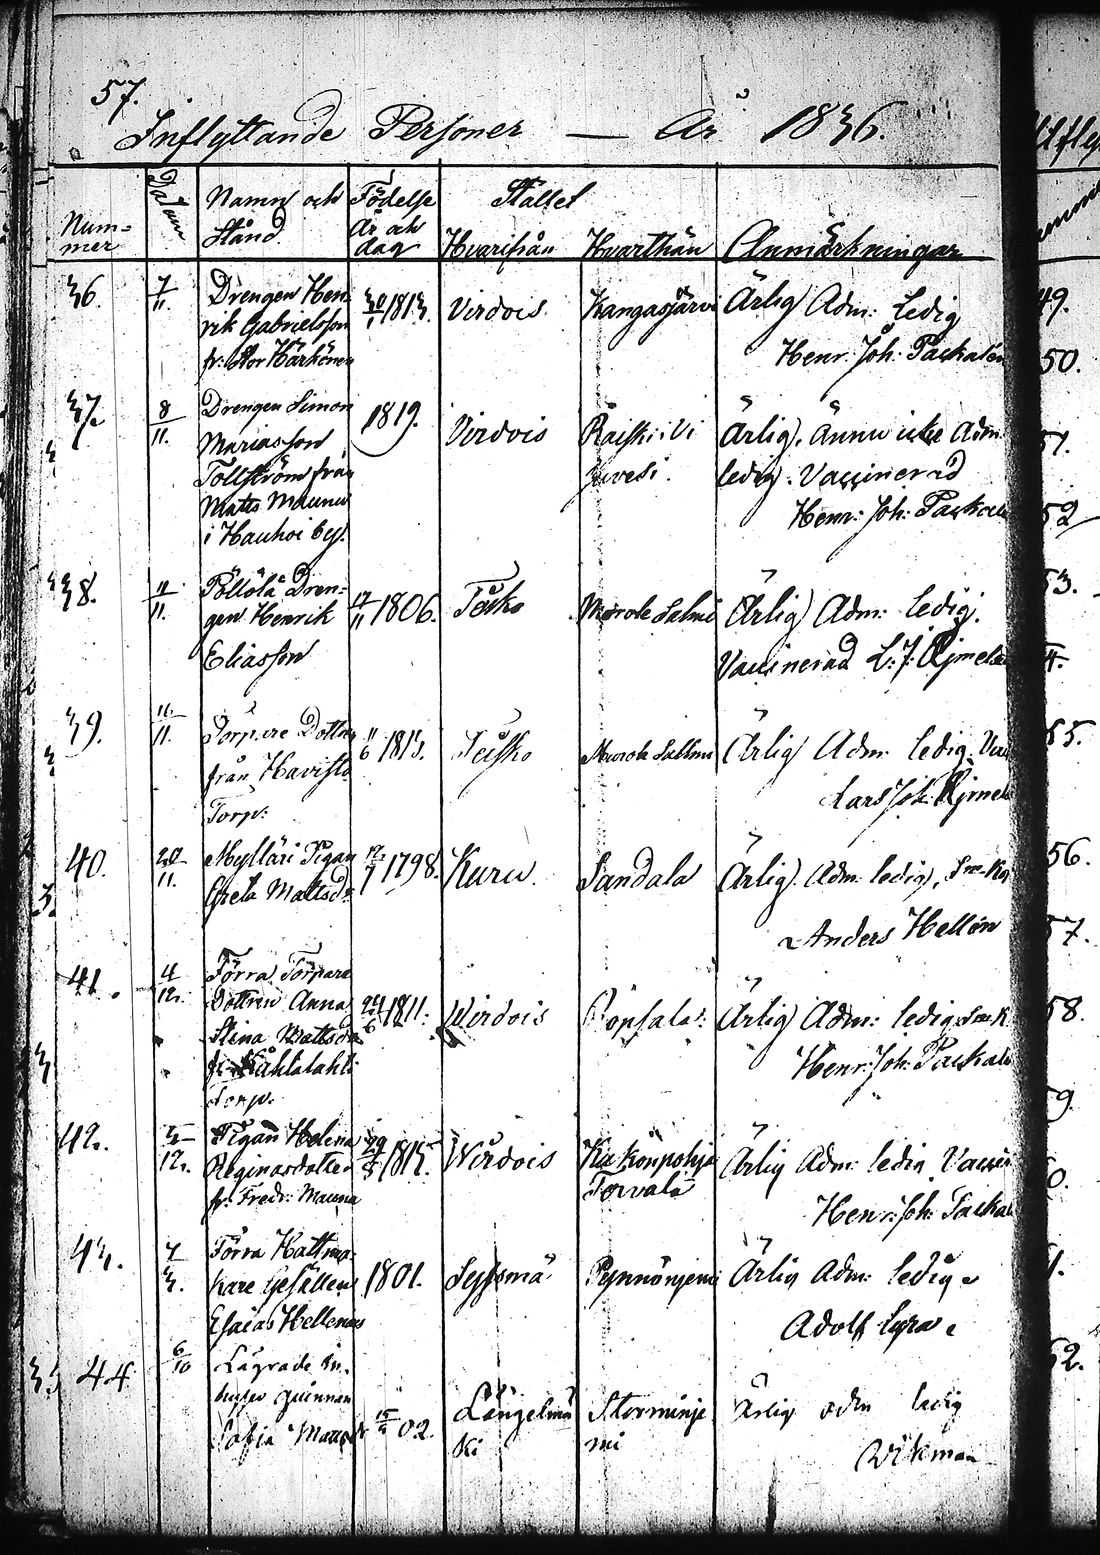 57.
Inflyttande Personer — År 1836.
Nummer Datum Namn och Stånd Födelse År och dag Stället Hvarifrån Hvarthän Anmärkningar
36. 7/11. Drengen Hen-
rik Gabrielsson
fr: Stor Härkönen
30/1 1813. Virdois Kangasjärvi Ärlig Adm: ledig
Henr: Joh: Packalén
37. 8/11. Drengen Simon
Mariasson
Tollström från
Matts Maunu
i Hauhoi by.
1819. Virdois Räiski: Vi
juvesi. Ärlig. Ännu icke Adm.
ledig. Vaccinerad
Henr: Joh: Packalé
38. 11/11. Pöllölä Dren-
gen Henrik
Eliasson
17/11 1806. Teisko Murole Salmi Ärlig Adm: ledig.
Vaccinerad L: J:
39. 11/11. Torpare Dottren
från Havisto
Torp:
11/6 1813. Teisko Murole Salmi Ärlig Adm: ledig. Vac
Lars Joh:
40. 20/11. Mylläri Pigan
Greta Mattsdr
17/7 1798. Kuru. Sandala Ärlig. Adm: ledig,
Anders Hellén
41. 4/12. Förra Torpare
Dottren Anna
Stina Mattsdr
fr:
Torp.
24/6 1811. Wirdois Popsala: Ärlig Adm: ledig
Henr: Joh: Packalé
42. 5/12. Pigan Helena
Reginasdotter
fr: Fredr: Mauna
29/5 1815. Wirdois Kukonpohja
Torvala Ärlig Adm: ledig Vaccin
Henr: Joh: Packal
43. 7/3. Förra Hattma-
kare Gesällen
Esaias Hellenius
1801. Sysmä Pynnönjemi Ärlig Adm: ledig
Adolf Lyra
44 6/10 Lägrade In-
hyses quinnan
Sofia Mattsdr
02. Längelmä
ki Storminje
mi Ärlig adm ledig
Wikman
49.
50.
51.
52
53.
55.
56.
57.
58.